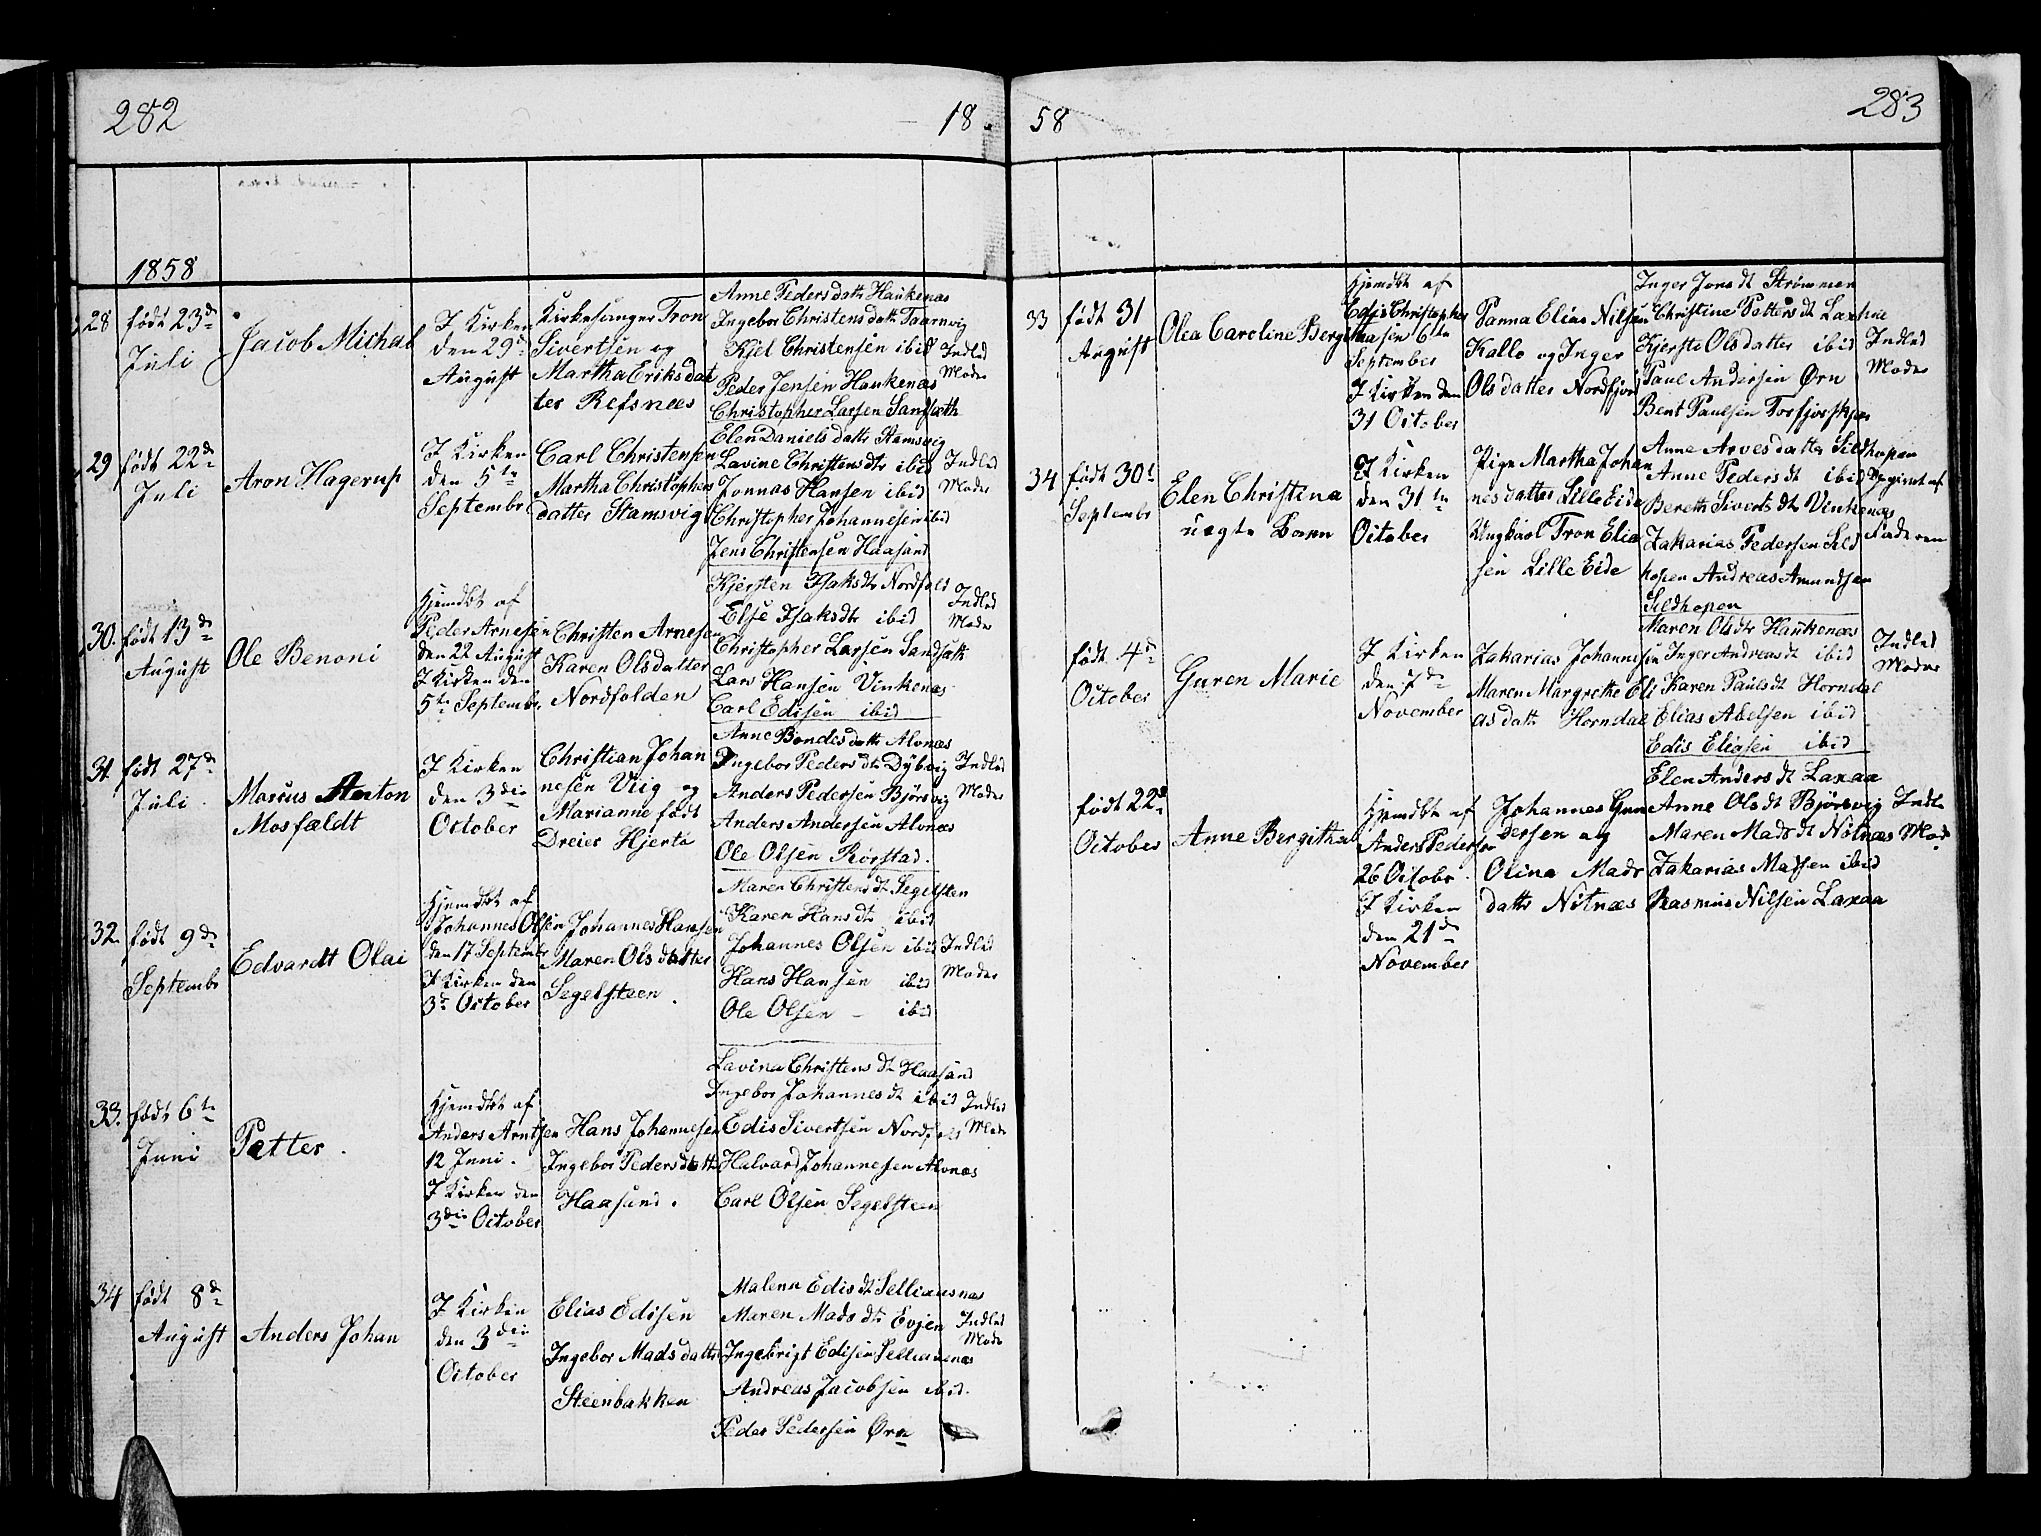 282
18
1858
28
født 23de
Juli
Jacob Michal
I Kirken
den 29de
August
Kirkesanger Tron
Sivertsen og
Martha Eriksdat
ter Refsnees
Anne Pedersdatr Haukenæs
Ingebor Christensdatr Taarnvig
Kjel Christensen ibid
Peder Jensen Haukenæs
Christopher Larsen Sandsæth
Indled
Moder
29
født 22de
Juli
Aron Hagerup
I Kirken
den 5te
Septembr
Carl Christensen
Martha Christophers
datter Stamsvig
Elen Daniels datter Stamsvig
Lavine Christensdtr ibid
Jonnas Hansen ibid
Christopher Johannesen ibid
Jens Christensen Haasund
Indled
Moder
30.
født 13de
August
Ole Benoni
Hjemdbt af
Peder Arnesen
den 22 August
I Kirken den
5te Septembr
Christen Arnesen
Karen Olsdatter
Nordfolden
Kjersten Isaksdtr Nordfold
Else Isaksdtr ibid
Christopher Larsen Sandsæth
Lars Hansen Vinkenæs
Carl Edisen ibid
Indled
Moder
31.
født 27de
Juli
Marcus Anton
Mosfældt
I Kirken
den 3die
October
Christian Johan
nesen Viig og
Marianne født
Dreier Hjertø
Anne Bondesdatr Alvnæs
Ingebor Pedersdtr Dybvig
Anders Pedersen Bjørsvig
Anders Andersen Alvnæs
Ole Olsen Rørstad.
Indled
Moder
32.
født 9de
Septembr
Edvardt Olai
Hjemdbt af
Johannes Olsen
den 17 Septembr
I Kirken den
3de October
Johannes Hansen
Maren Olsdatter
Segelsteen.
Maren Christensdt Segelsten
Karen Hansdtr ibid
Johannes Olsen ibid
Hans Hansen ibid
Ole Olsen - ibid
Indled
Moder
33.
født 6te
Juni
Petter.
Hjemdbt af
Anders Arntsen
12 Juni.
I Kirken den
3die October
Hans Johannesen
Ingebor Pedersdatter
Haasund.
Lavina Christensdtr Haasund
Ingebor Johannesdt ibid
Edis Sivertsen Nordfold
Halvard Johannesen Alvnæs
Carl Olsen Segelsteen
Indled
Moder
34
født 8de
August
Anders Johan
I Kirken
den 3die
October
Elias Edisen
Ingebor Madsdatter
Steenbakken
Malena Edisdt Selliansnæs
Maren Madsdtr Evjen
Ingebrigt Edisen
Andreas Jacobsen ibid.
Peder Pedersen Ørn
Indled
Moder
58
283
33
født 31
August
Olea Caroline Bergitha
Hjemdbt af
Edis Christopher
sen 6te
September
I Kirken den
31 October
Panna Elias Nilsen
Kallo og Inger
Olsdatter Nordfjord
Inger Jonsdt Strømmen
Christine Pettersdt Laxhue
Kjerste Olsdatter ibid
Paul Andersen Ørn
Bent Paulsen
Indled
Moder
34
født 30t
Septembr
Elen Christina
uægte Barn
I Kirken
den 31te
October
Pige Martha Johan
nesdatter Lille Eide
Ungkarl Tron Elia
sen Lille Eide
Anne Arvesdatter Sildhopen
Anne Pedersdt ibid
Bereth Sivertsdtr Vinkenæs
Zakarias Pedersen Sild
hopen Andreas Amundsen
Sildhopen
Angivet af
Faderen
født 4de
October
Guren Marie
I Kirken
den 7de
November
Zakarias Johannessen
Maren Margrethe Eli
asdatr Horndal
Maren Olsdtr Haukenæs
Inger Andreasdt ibid
Karen Paulsdt Horndal
Elias Abelsen ibid
Edis Eliasen ibid
Indled
Moder
født 22de
October
Anne Bergitha
Hjemdbt af
Anders Pedersen
26 Octobr.
I Kirken
den 21de
November
Johannes Gun
dersen og
Olina Mads
datter Nøtnæs
Elen Andersdt Laxaa
Anne Olsdt Bjørsvig
Maren Madsdt Nøtnæs
Zakarias Matsen ibid
Rasmus Nilsen Laxaa
Indle
Mod.